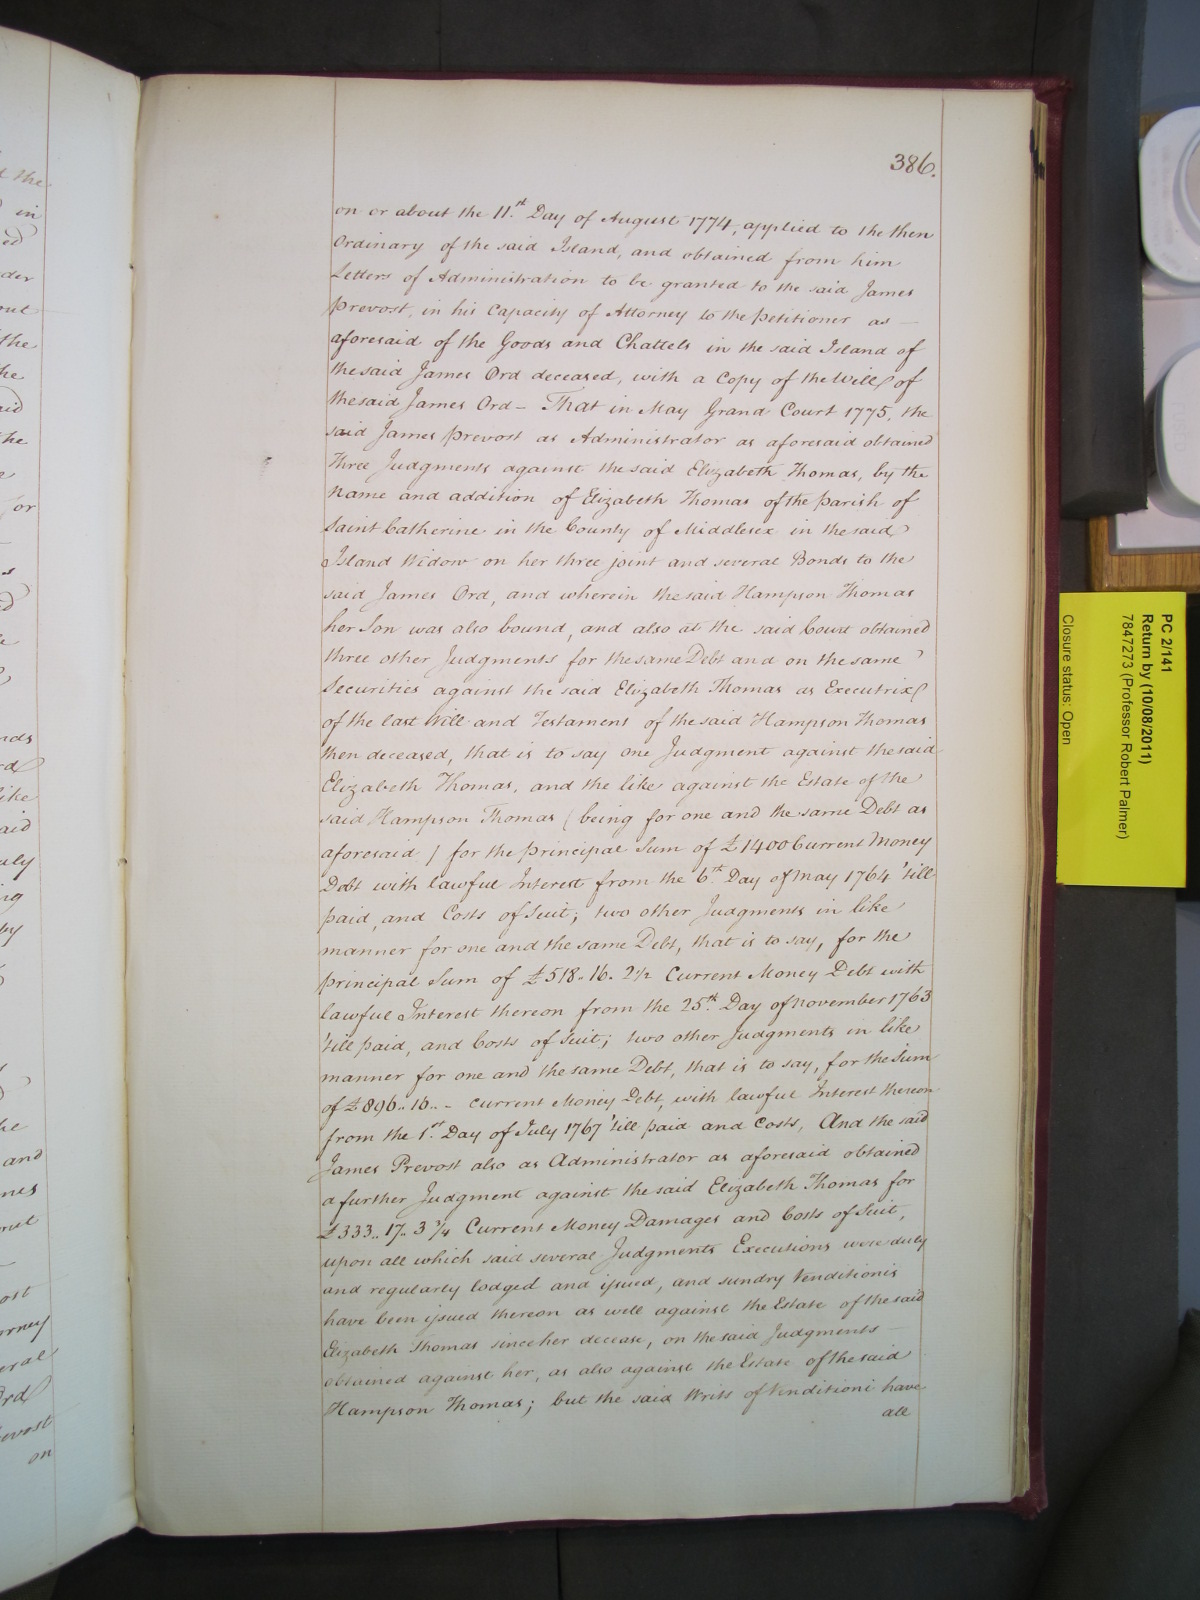 386.
on or about the 11.st Day of August 1774, applied to the then
Ordinary of the said Island, and obtained from him
Letters of Administration to be granted to the said James
Prevost, in his Capacity of Attorney to the Petitioner as —
aforesaid of the Goods and Chattels in the said Island of
the said James Ord deceased, with a Copy of the Will of
the said James Ord – That in May Grand Court 1775, the
said James Prevost as Administrator as aforesaid obtained
Three Judgments against the said Elizabeth Thomas, by the
Name and addition of Elizabeth Thomas of the Parish of
Saint Catherine in the County of Middlesex in the said
Island Widow on her three joint and several Bonds to the
said James Ord, and wherein the said Hampson Thomas
her Son was also bound, and also at the said Court obtained
three other Judgments for the same Debt and on the same
Securities against the said Elizabeth Thomas as Executrix
of the last Will and Testament of the said Hampson Thomas
then deceased, that is to say one Judgment against the said
Elizabeth Thomas, and the like against the Estate of the
said Hampson Thomas (being for one and the same Debt as
aforesaid) for the Principal Sum of £1400 Current Money
Debt with lawful Interest from the 6.th Day of May 1764 'till
paid, and Costs of Suit; two other Judgments in like
manner for one and the same Debt, that is to say, for the
principal Sum of £518.. 16. 2½ Current Money Debt with
lawful Interest thereon from the 25.th Day of November 1763
'till paid, and Costs of Suit; two other Judgments in like
manner for one and the same Debt, that is to say, for the Sum
of £896.. 16.. – Current Money Debt, with lawful Interest thereon
from the 1.st Day of July 1767 'till paid and Costs, And the said
James Prevost also as Administrator as aforesaid obtained
a further Judgment against the said Elizabeth Thomas for
£333.. 17.. 3¾ Current Money Damages and Costs of Suit,
upon all which said several Judgments Executions were duly
and regularly lodged and issued, and sundry Venditionis
have been issued thereon as well against the Estate of the said
Elizabeth Thomas since her decease, on the said Judgments —
obtained against her, as also against the Estate of the said
Hampson Thomas; but the said Writs of Venditioni have
all
PC 2/141
Return by (10/08/2011)
7847273 (Professor Robert Palmer)
Closure status: Open